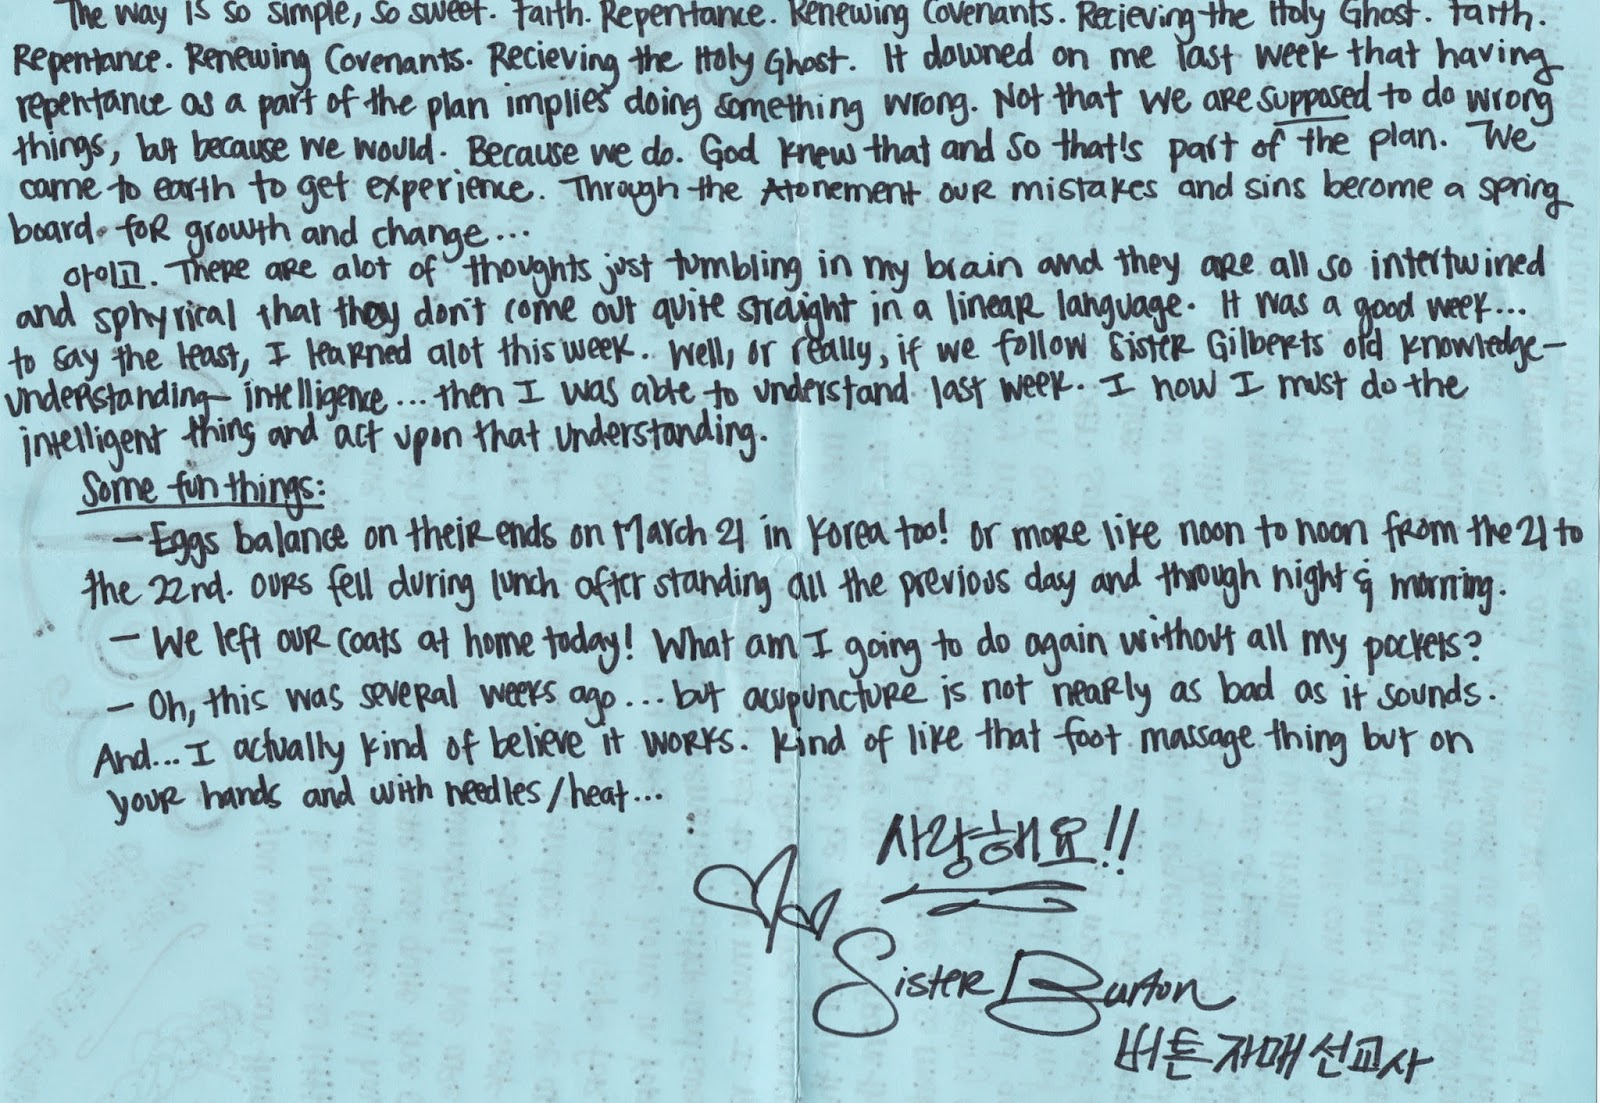 The way is so simple, so sweet. Faith. Repentance. Renewing Covenants. Recieving the Holy Ghost. Faith.
Repentance. Renewing Covenants. Recieving the Holy Ghost. It dawned on me last week that having
repentance as a part of the plan implies doing something wrong. Not that we are supposed to do wrong
things, but because we would. Because we do. God knew that and so that's part of the plan. We
came to earth to get experience. Through the Atonement our mistakes and sins become a spring
board for growth and change...
아이고. There are alot of thoughts just tumbling in my brain and they are all so intertwined
and sphyrical that they don't come out quite straight in a linear language. It was a good week...
to say the least, I learned alot this week. Well, or really, if we follow Sister Gilberts old knowledge-
understanding-intelligence... then I was able to understand last week. I now I must do the
intelligent thing and act upon that understanding.
Some fun things:
- Eggs balance on their ends on March 21 in Korea too! Or more like noon to noon from the 21 to
the 22nd. Ours fell during lunch after standing all the previous day and through night & morning.
- We left our coats at home today! What am I going to do again without all my pockets?
- Oh, this was several weeks ago... but acupuncture is not nearly as bad as it sounds.
And... I actually kind of believe it works. Kind of like that foot massage thing but on
your hands and with needles/heat...
사랑해요!!
Sister Burton
버튼 자매 선교사